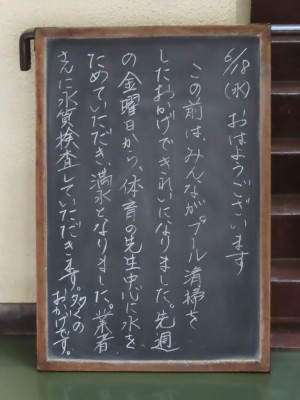 6/18(水)おはようございます
この前は、みんながプール清掃を
したおかげできれいになりました。先週
の金曜日から、体育の先生中心に水を
ためていただき、満水となりました。業者
さんに水質検査していただきます。多くの
おかげです。